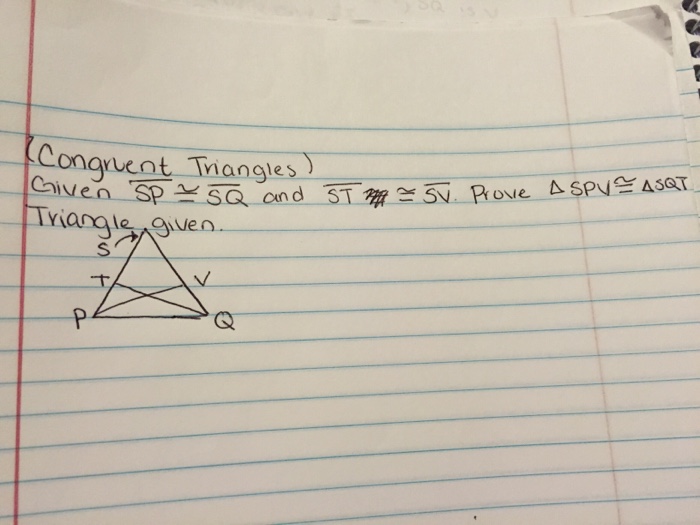 (Congruent Triangles)
Given SP ≅ SQ and ST ≅ SV. Prove △SPV ≅ △SQT
Triangle given.
S
T V
P Q